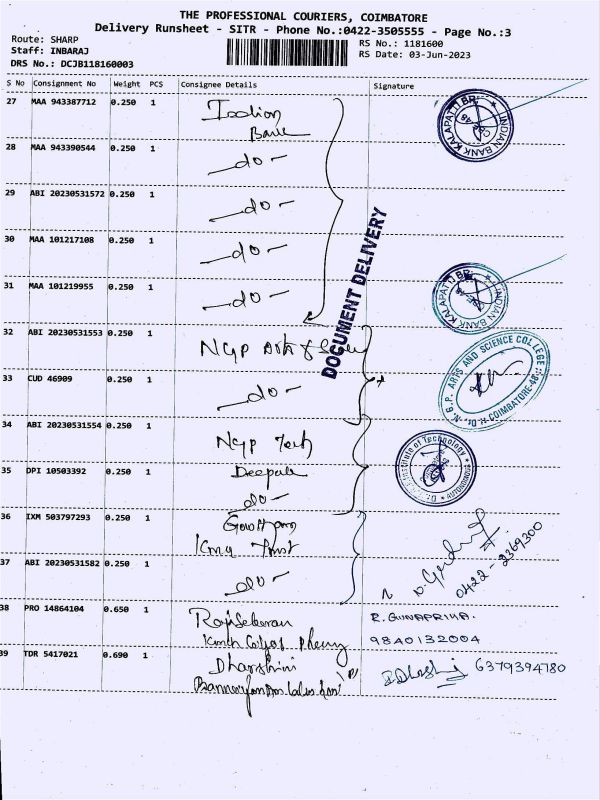 THE PROFESSIONAL COURIERS, COIMBATORE
Delivery Runsheet - SITR - Phone No.:0422-3505555 - Page No.:3
Route: SHARP
RS No.: 1181600
Staff: INBARAJ
RS Date: 03-Jun-2023
DRS No.: DCJB118160003
S No Consignment No Weight PCS Consignee Details Signature
27 MAA 943387712 0.250 1 Indian
Bank
28 MAA 943390544 0.250 1 -do-
29 ABI 20230531572 0.250 1 -do-
30 MAA 101217108 0.250 1 -do-
31 MAA 101219955 0.250 1 -do-
DOCUMENT DELIVERY
INDIAN BANK KALAPATTI BR.
INDIAN BANK KALAPATTI BR.
32 ABI 20230531553 0.250 1 NGP Arts &
33 CUD 46909 0.250 1 -do-
Dr. N.G.P. ARTS AND SCIENCE COLLEGE COIMBATORE-48
34 ABI 20230531554 0.250 1 NGP Tech
35 DPI 10503392 0.250 1 Deepak
-do-
Institute of Technology AUTONOMOUS
36 IXM 503797293 0.250 1
Kmch Trust
37 ABI 20230531582 0.250 1 -do-
0422-2369300
38 PRO 14864104 0.650 1 Rajisekaran R. GUNAPRIYA.
Kmch Pharmy 9840132004
39 TDR 5417021 0.690 1 Dharshini 6379394780